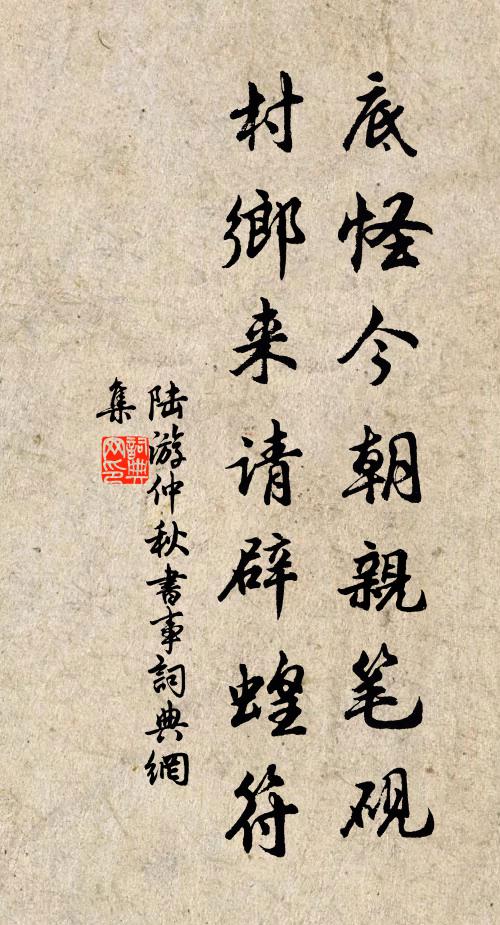 底怪今朝親笔硯
村鄉来请辟蝗符
陆游仲秋書事詞典網
集
詞典
网印